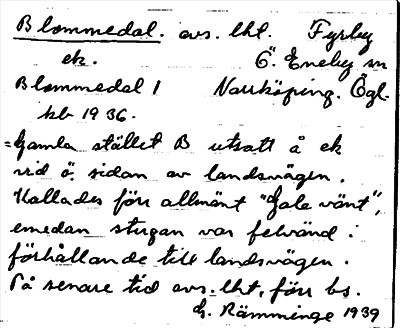 Blommedal. avs. lht. Fyrby
ek. Ö. Eneby sn
Blommedal 1 Norrköping. Ögl.
kb 1936.
= Gamla stället B utsatt å ek
vid ö. sidan av landsvägen.
Kallades förr allmänt "Gale vänt",
emedan stugan var felvänd i
förhållande till landsvägen.
På senare tid avs. lht, förr bs.
G. Rämminge 1939